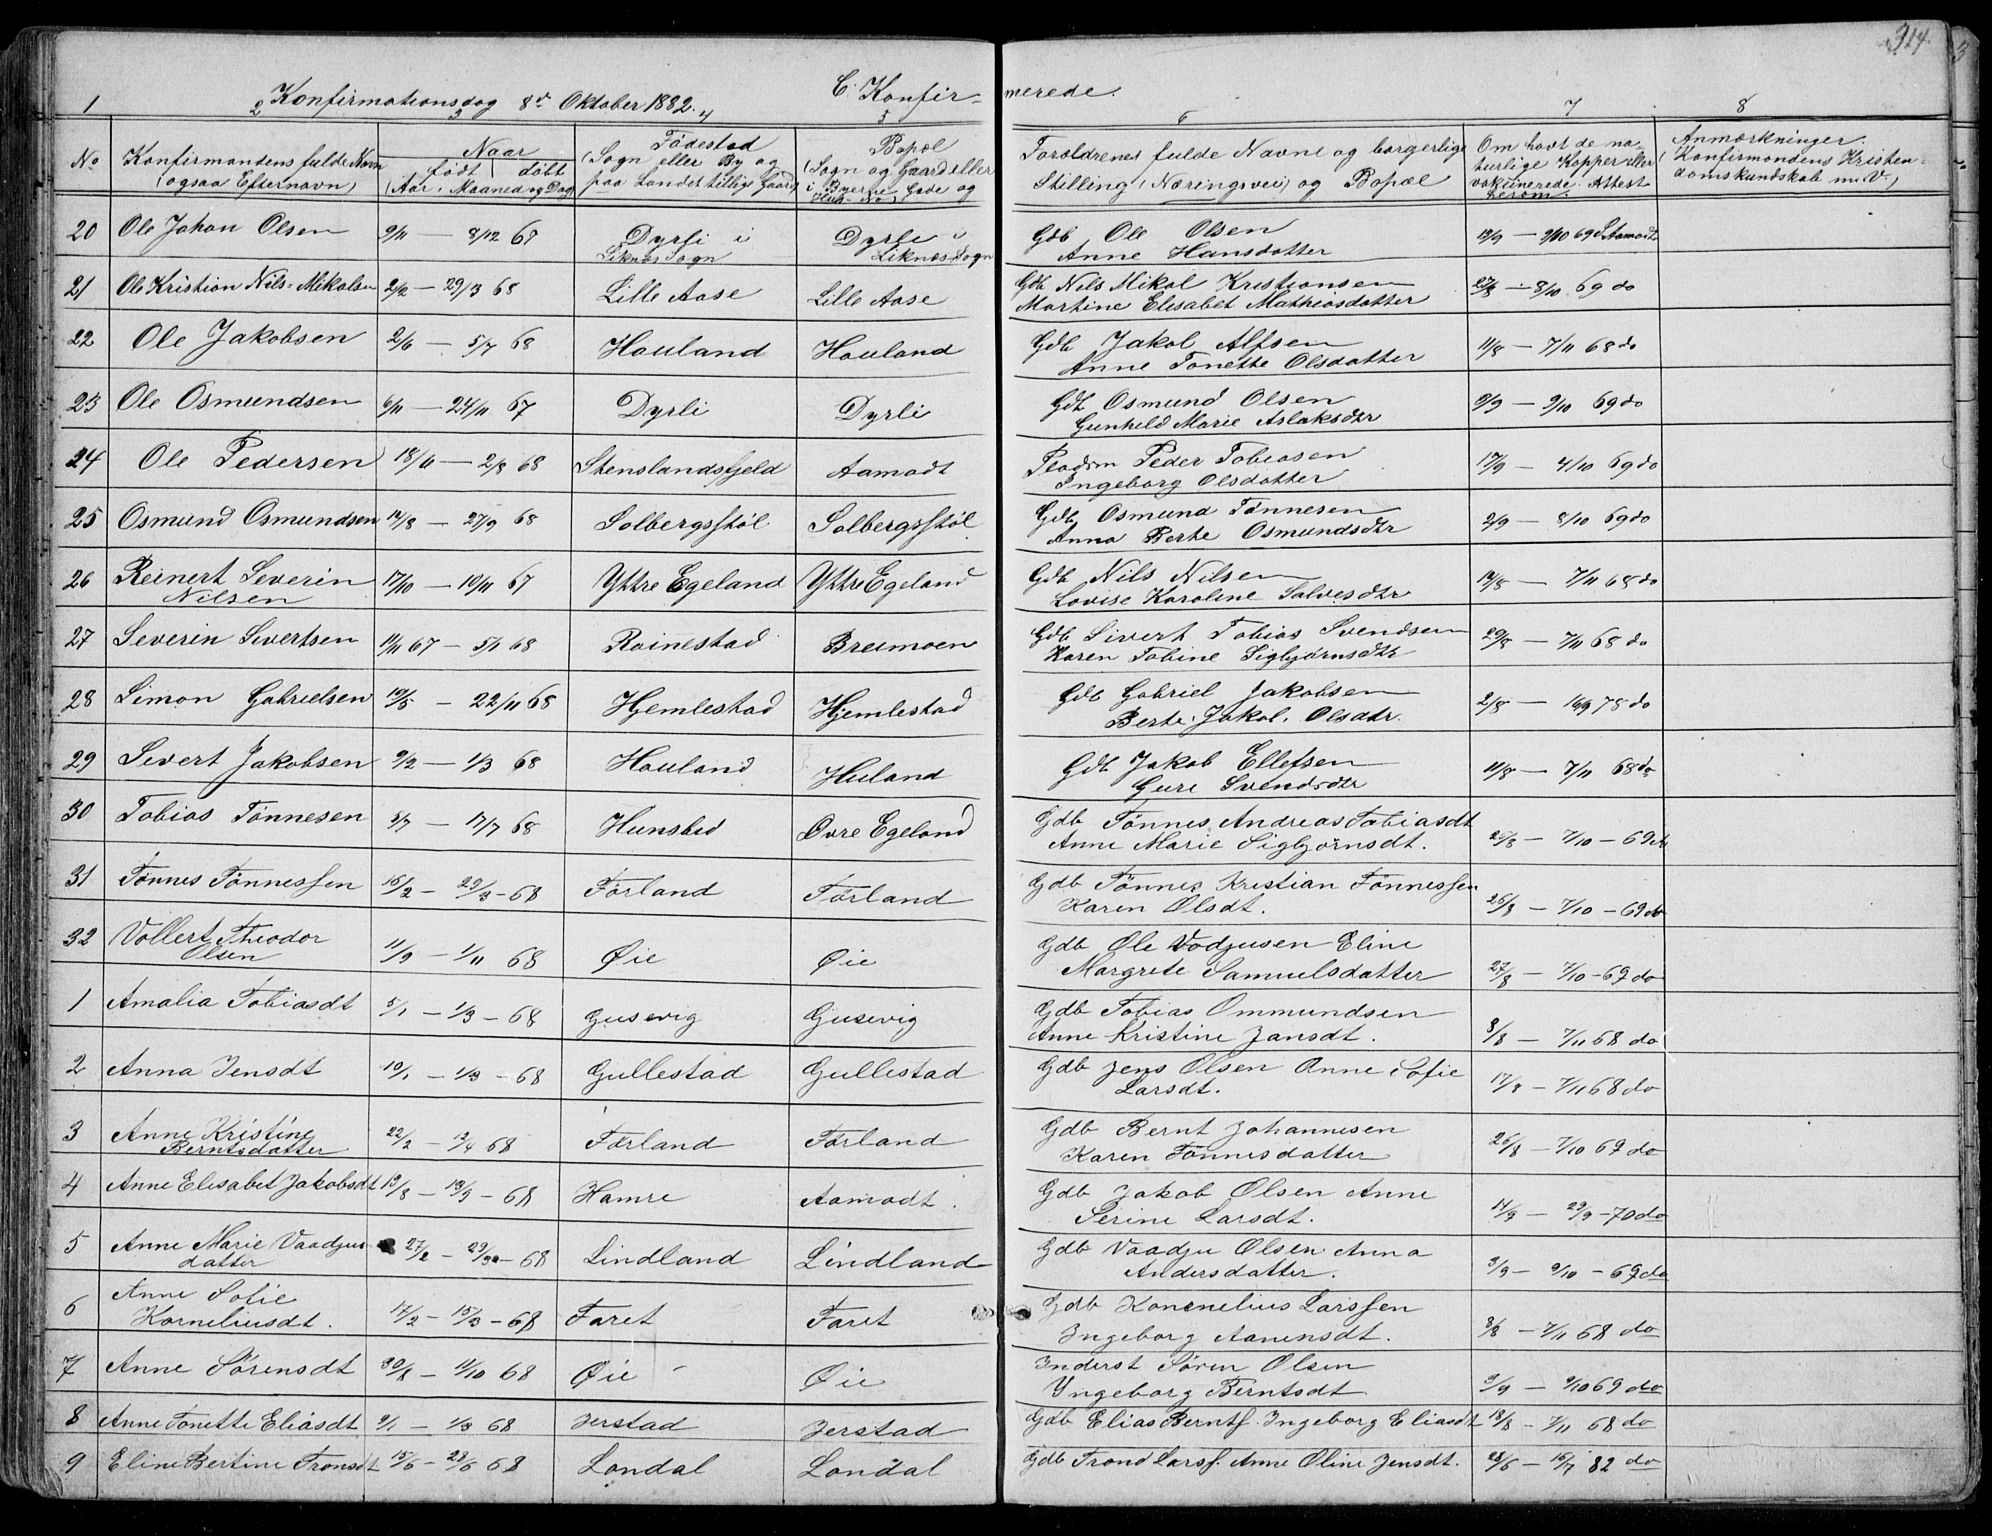 314
C. Konfirmerede.
Konfirmationsdag 8de Oktober 1882.
1 2 3 4 5 6 7 8
No
Konfirmandens fulde Navn (ogsaa Efternavn)
Naar
født døbt
(Aar, Maaned og Dag)
Fødestad
(Sogn eller By og paa Landet tillige Gaard)
Bopæl
(Sogn og Gaard eller i Byerne Gade og Hus-No)
Forældrenes fulde Navne og borgerlige Stilling (Næringsvei) og Bopæl
Om havt de naturlige Kopper eller vakcinerede. Attest herom.
Anmærkninger.
(Konfirmandens Kristendomskundskab m. V.)
20 Ole Johan Olsen 9/11 — 8/12 67 Dyrli i Liknæs Sogn Dyrli i Liknæs Sogn Gdb Ole Olsen Anne Hansdatter 12/9 — 9/10 69 S. Aamodt
21 Ole Kristian Nils-Mikalsen 2/2 — 29/3 68 Lille Aase Lille Aase Gdb Nils Mikal Kristiansen Martine Elisabet Mathiasdatter 27/8 — 8/10 69 do
22 Ole Jakobsen 2/6 — 5/7 68 Hauland Hauland Gdb Jakob Alfsen Anne Tonette Olsdatter 11/8 — 7/11 68 do
23 Ole Osmundsen 6/11 — 24/11 67 Dyrli Dyrli Gdb Osmund Olsen Gunhild Marie Aslaksdtr 2/9 — 9/10 69 do
24 Ole Pedersen 18/6 — 2/8 68 Stenslandsfjeld Aamodt Pladsm Peder Tobiasen Ingeborg Olsdatter 17/9 — 4/10 69 do
25 Osmund Osmundsen 17/8 — 27/9 68 Solbergsstøl Solbergsstøl Gdb Osmund Tønnesen Anna Berte Osmundsdtr 2/9 — 8/10 69 do
26 Reinert Severin Nilsen 17/10 — 10/11 67 Yttre Egeland Yttre Egeland Gdb Nils Nilsen Lovise Karoline Salvesdtr 12/8 — 7/11 68 do
27 Severin Sivertsen 11/11 67 — 5/1 68 Roinestad Breimoen Gdb Sivert Tobias Svendsen Karen Tobine Sigbjørnsdtr 29/8 — 7/11 68 do
28 Simon Gabrielsen 19/5 — 22/11 68 Hjemlestad Hjemlestad Gdb Gabriel Jakobsen Berte Jakob. Olsdtr. 2/8 — 78 do
29 Severt Jakobsen 9/2 — 1/3 68 Hauland Huland Gdb Jakob Ellefsen Guri Svendsdtr 11/8 — 7/11 68 do
30 Tobias Tønnesen 5/7 — 17/7 68 Hunsbed Øvre Egeland Gdb Tønnes Andreas Tobiasdt Anne Marie Sigbjørnsdt. 25/8 — 7/10 — 69 do
31 Tønnes Tønnessen 16/2 — 29/3 — 68 Førland Førland Gdb Tønnes Kristian Tønnessen Karen Olsdt. 26/8 — 7/10 — 69 do
32 Vollert Theodor Olsen 11/9 — 1/11 68 Øie Øie Gdb Ole Vodjusen Eline Margrete Samuelsdatter 27/8 — 7/10 — 69 do
1 Amalia Tobiasdt 5/1 — 1/3 — 68 Gusevig Gusevig Gdb Tobias Ommundsen Anne Kristine Jansdt. 8/8 — 7/11 68 do
2 Anna Jensdt 19/1 — 1/3 — 68 Gullestad Gullestad Gdb Jens Olsen Anne Sofie Larsdt. 17/8 — 7/11 68 do
3 Anne Kristine Berntsdatter 22/2 — 12/4 68 Førland Førland Gdb Bernt Johannesen Karen Tønnesdatter 26/8 — 7/10 69 do
4 Anne Elisabet Jakobsdt 13/8 — 13/9 — 68 Hamre Aamodt. Gdb Jakob Olsen Anne Serine Larsdt. 14/9 — 29/9 — 70 do
5 Anne Marie Vaadjusdatter 27/2 — 29/3 — 68 Lindland Lindland Gdb Vaadju Olsen Anna Andersdatter. 3/9 — 9/10 — 69 do
6 Anne Sofie Korneliusdt. 17/2 — 15/3 — 68 Faret Faret Gdb Konenelius Larssen Ingeborg Aanensdt. 8/8 — 7/11 68 do
7 Anne Sørensdt 30/8 — 11/10 68 Øie Øie Inderst Søren Olsen Yngeborg Berntsdt 3/9 — 9/10 69 do
8 Anne Tonette Eliasdt 9/1 — 1/3 68 Jerstad Jerstad Gdb Elias Berntf. Ingeborg Eliasdt 18/8 — 7/11 68 do
9 Eline Bertine Tronsdt 15/6 — 28/6 68 Londal Londal Gdb Trond Larsf. Anne Oline Jensdt. 28/6 — 16/7 82 do